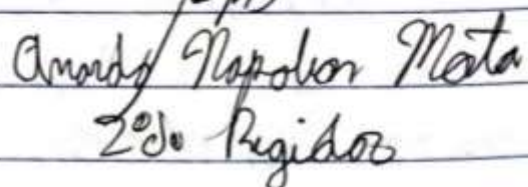 Amando Napoleon Mata
2°do Regidor